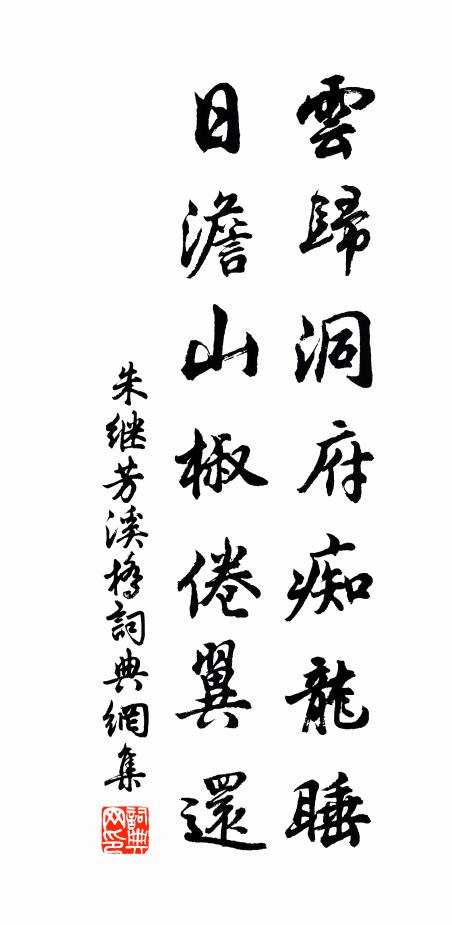 雲歸洞府痴龍睡
日澹山椒倦翼還
朱继芳溪橋詞典網集
詞典网印